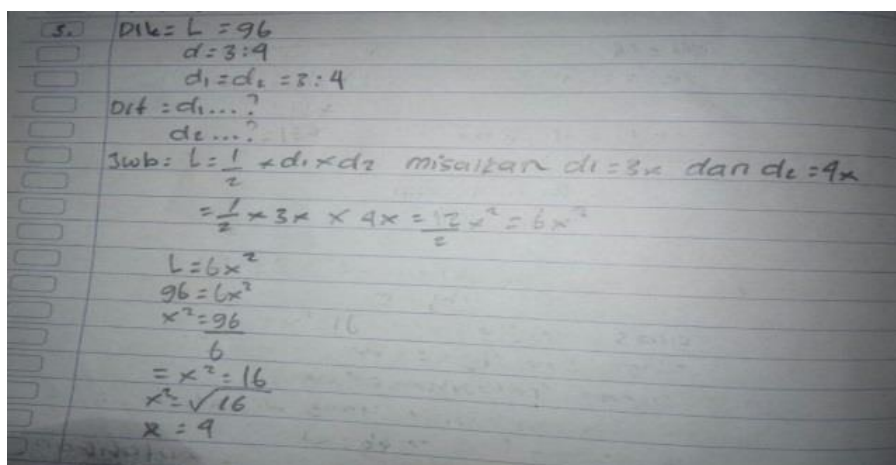 5. Dik = L = 96
d = 3 : 4
d₁ = d₂ = 3 : 4
Dit = d₁ ... ?
d₂ ... ?
Jwb = L = 1/2 × d₁ × d₂ misalkan d₁ = 3x dan d₂ = 4x
= 1/2 × 3x × 4x = 12/2 x² = 6x²
L = 6x²
96 = 6x²
x² = 96/6
= x² = 16
x² = √16
x = 4